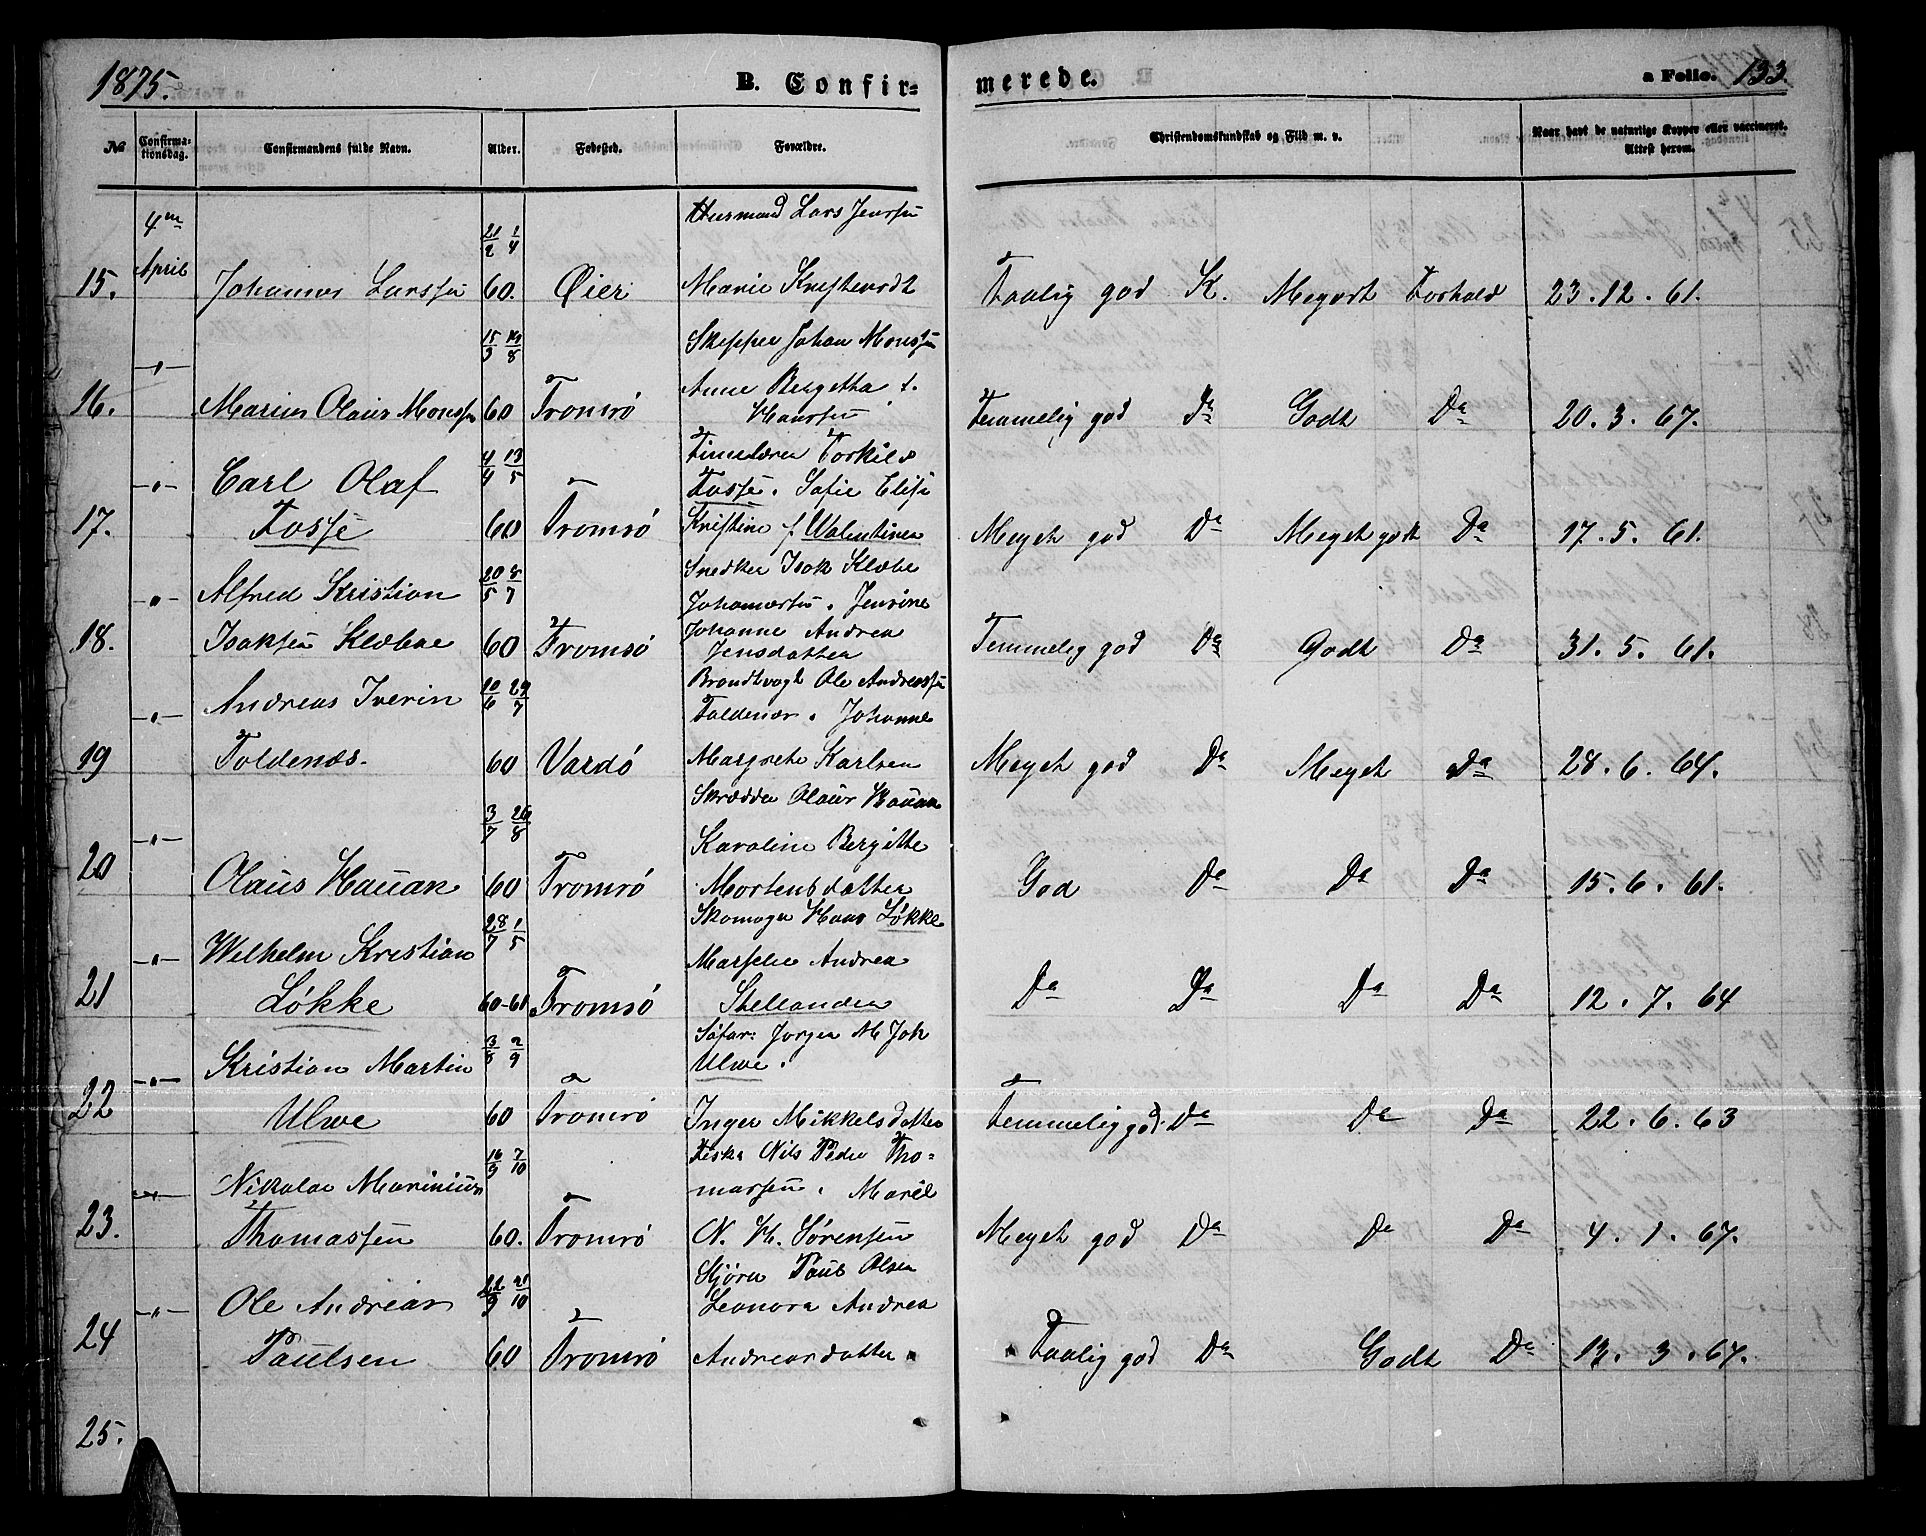 1875.
B. Confir=
merede.
a Folio. 133.
No
Confirma-
tionsdag.
Confirmandens fulde Navn.
Alder.
Fødested.
Forældre.
Christendomskundskab og Flid m. v.
Naar havt de naturlige Kopper eller vaccineret.
Attest herom.
4de
April
15.
Johannes Larssen
21/2 1/4
60.
Øier
Huusmand Lars Jenssen
Marie
Taalig god K. Meget Forhold
23. 12. 61.
16.
-"-
Marius Olaus Monssen
15/3 19/8
60
Tromsø
Skipper Johan Monssen
Anne Bergetha f.
Hanssen
Temmelig god Do Godt Do
20. 3. 67.
17.
-"-
Carl Olaf
Fosse
4/4 13/5
60
Tromsø
Torkild
Fosse. Sofie Elise
Kristine f. Walentinsen
Meget god Do Meget godt Do
17. 5. 61.
18.
-"-
Alfred Kristian
Isaksen Klæboe
20/5 8/7
60
Tromsø
Snedker Isak Klæbo
Johannessen. Jensine
Johanne Andrea
Jensdatter
Temmelig god Do Godt Do
31. 5. 61.
19
-"-
Andreas Iverin
Foldenæs.
10/6 29/7
60
Vardø
Brandvagt Ole Andreassen
Foldenæs. Johanne
Margrete Karlsen
Meget god Do Meget Do
28. 6. 64.
20
-"-
Olaus Hauan
3/7 26/8
60
Tromsø
Skrædder Olaus Hauan
Karoline Bergitte
Mortensdatter
God Do Do Do
15. 6. 61.
21
-"-
Wilhelm Kristian
Løkke
28/7 1/5
60-61
Tromsø
Skomager Hans Løkke
Marselie Andrea
Do Do Do Do
12. 7. 64
22
-"-
Kristian Martin
Ulwe
3/8 2/9
60
Tromsø
Søfar: Jørgen M Joh
Ulwe.
Inger Mikkelsdatter
Temmelig god. Do Do Do
22. 6. 63
23.
-"-
Nikolai Marinius
Thomassen
16/9 7/10
60.
Tromsø
Fisker Nils Peder Tho=
massen. Maril
N. H. Sørensen
Meget god Do Do Do
4. 1. 67.
24
-"-
Ole Andreas
Paulsen
22/9 21/10
60
Tromsø
Paul Olsen
Leonora Andrea
Andreasdatter
Taalig god Do Godt Do
13. 3. 67.
25.